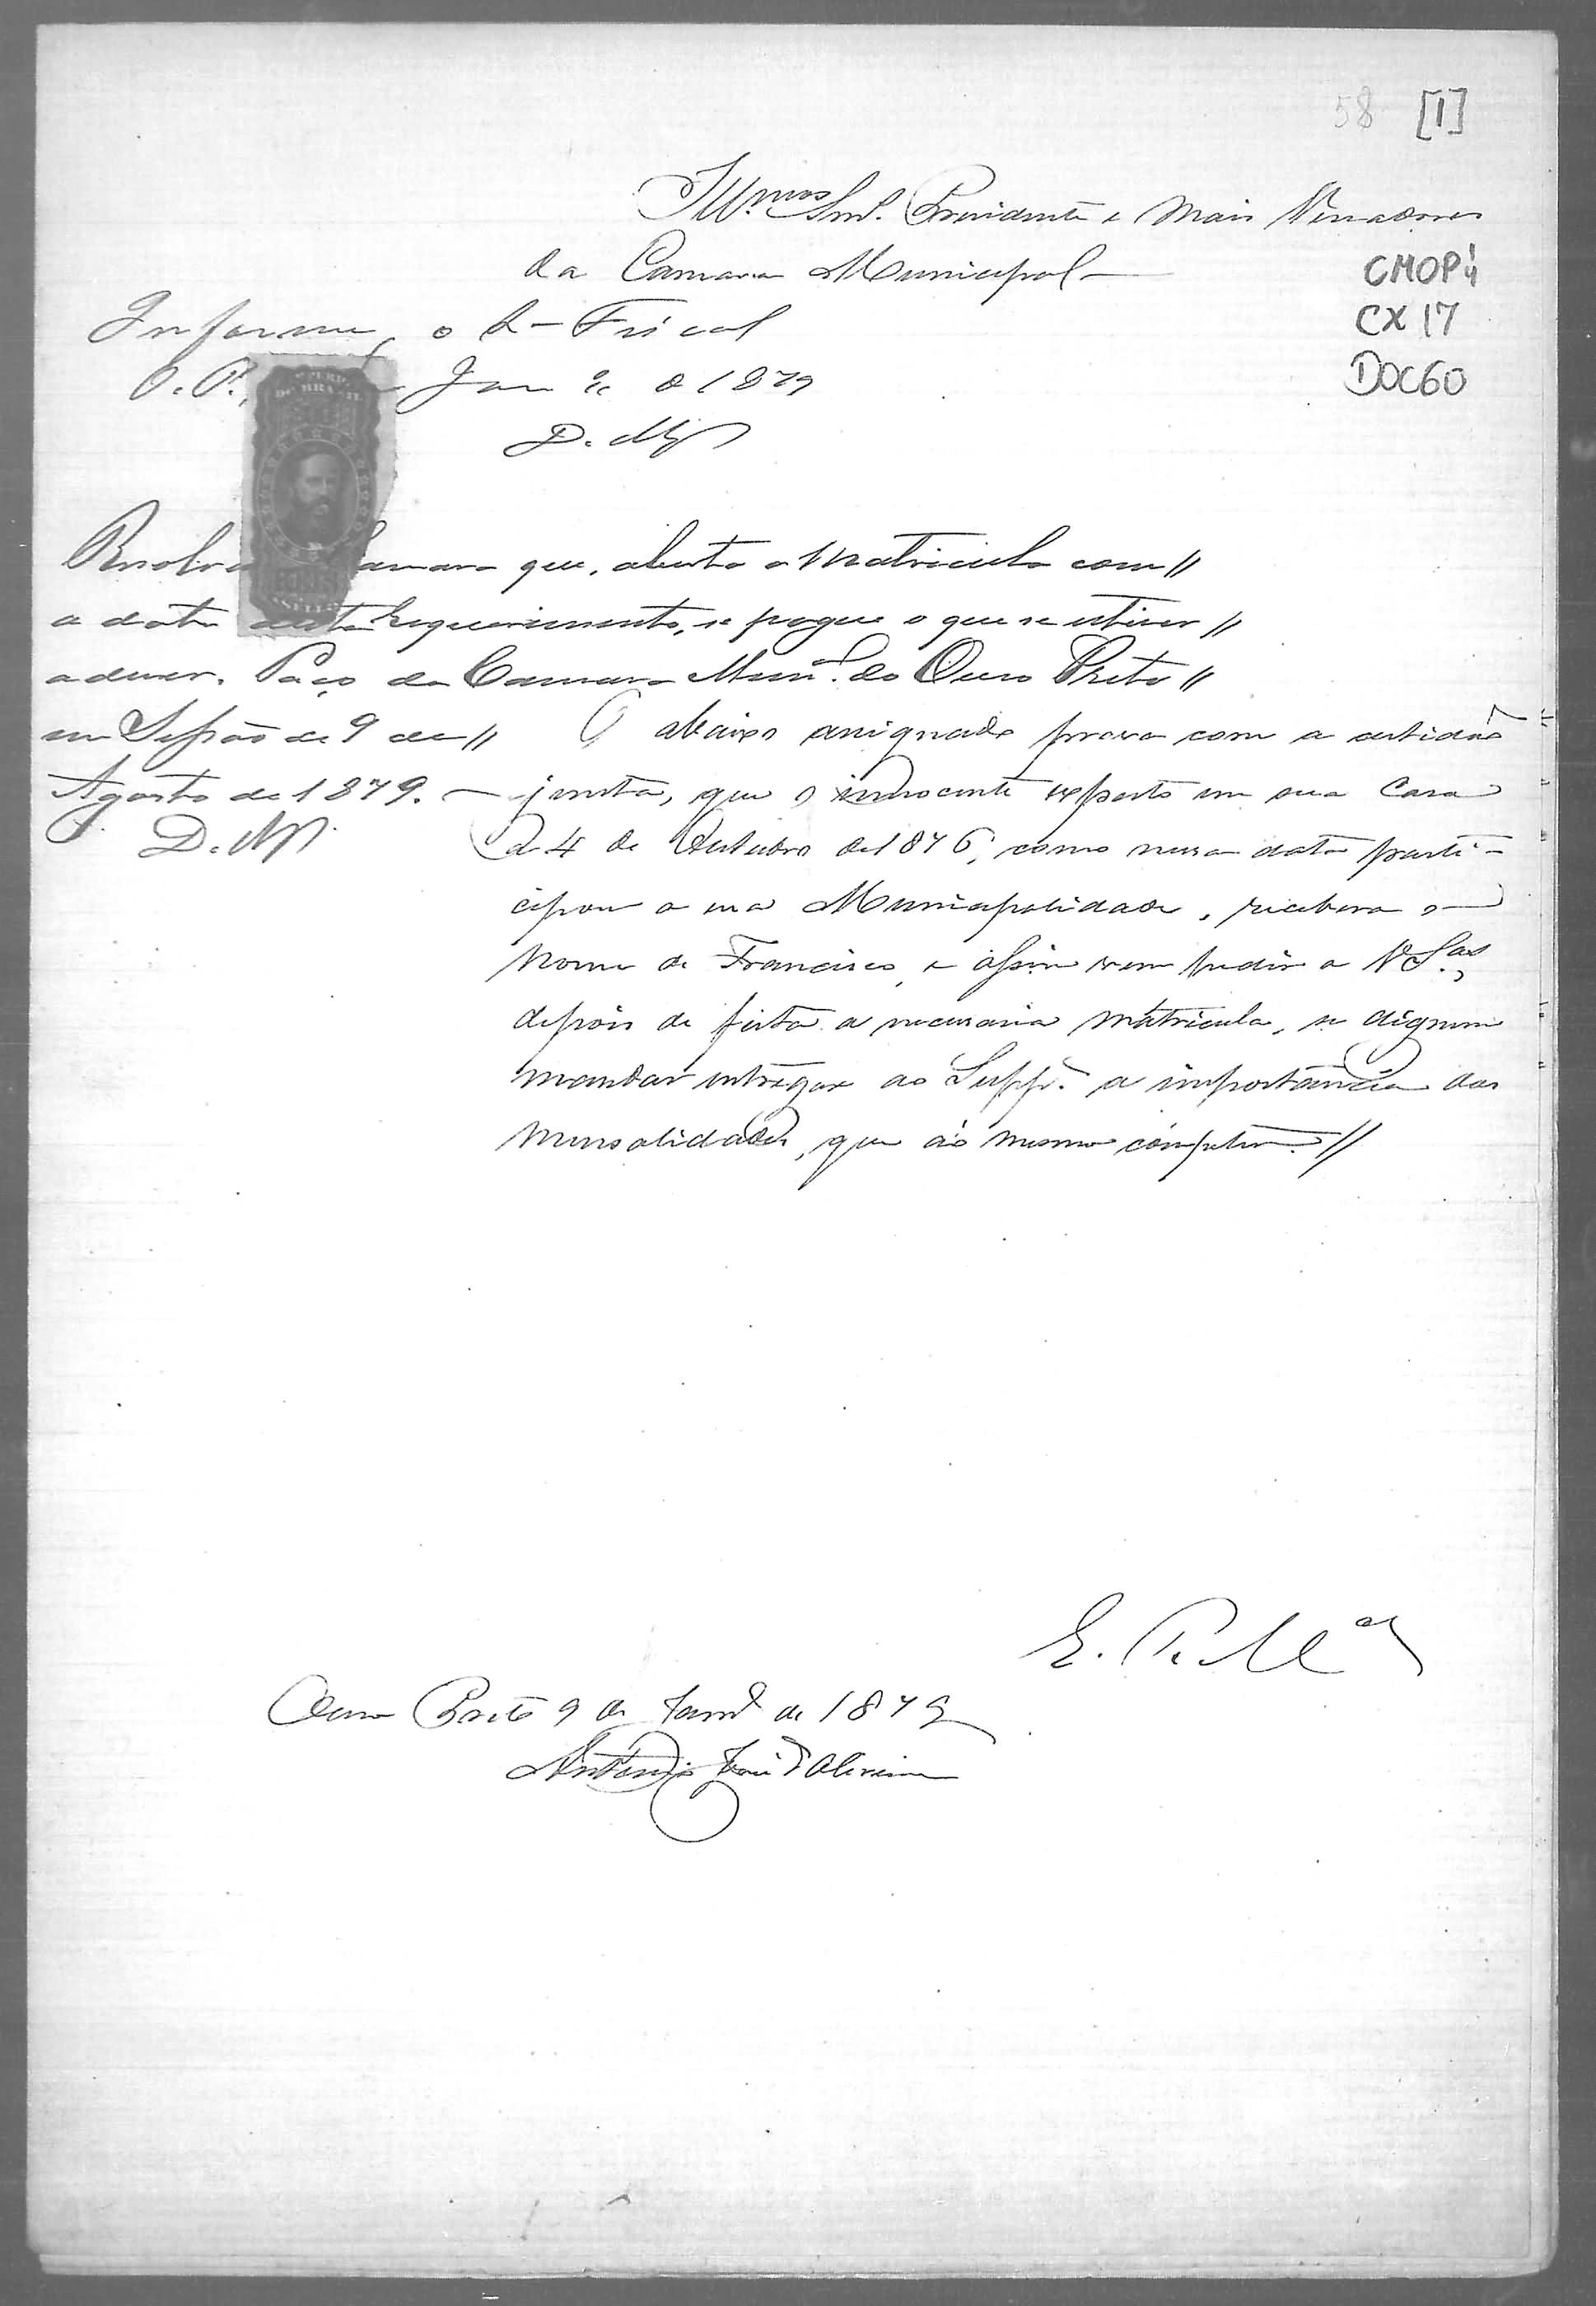 58 [1]
Ill.mos Snr. Presidente e mais Vereadores
da Camara Municipal
CMOP
CX 17
DOC60
Informe o Fiscal
O. P., Jan.º de 1879
D. M
Resolve Camara que, aberta a matricula com //
a data deste requerimento, se pague o que se estiver //
a dever. Paço da Camara Mun.al do Ouro Preto //
em Sessão de 9 de //
Agosto de 1879.
D. M
O abaixo assignado prova com a certidão
junta, que o innocente exposto em sua casa
a 4 de Outubro de 1876, como nessa data parti-
cipou a essa Municipalidade, recebera o
nome de Francisco, e assim vem pedir a V Sas,
depois de feita a necessaria matricula, se dignem
mandar entregar ao Suppe. a importancia das
mensalidades, que ao mesmo competem. //
E. R. M.ce
Ouro Preto 9 de Janro de 1879
Antonio José d'Oliveira